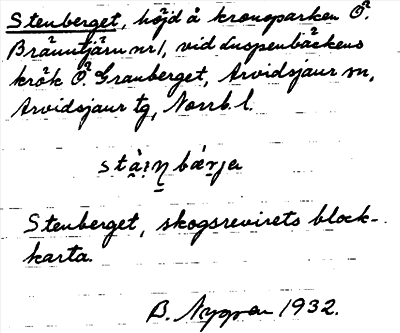 Stenberget, höjd å kronoparken Ö.
Bränntjärn nr 1, vid Luspenbäckens
krök Ö. Granberget, Arvidsjaur sn,
Arvidsjaur tg, Norrb. l.
Stenberget, skogsrevirets block-
karta.
B. Nygren 1932.